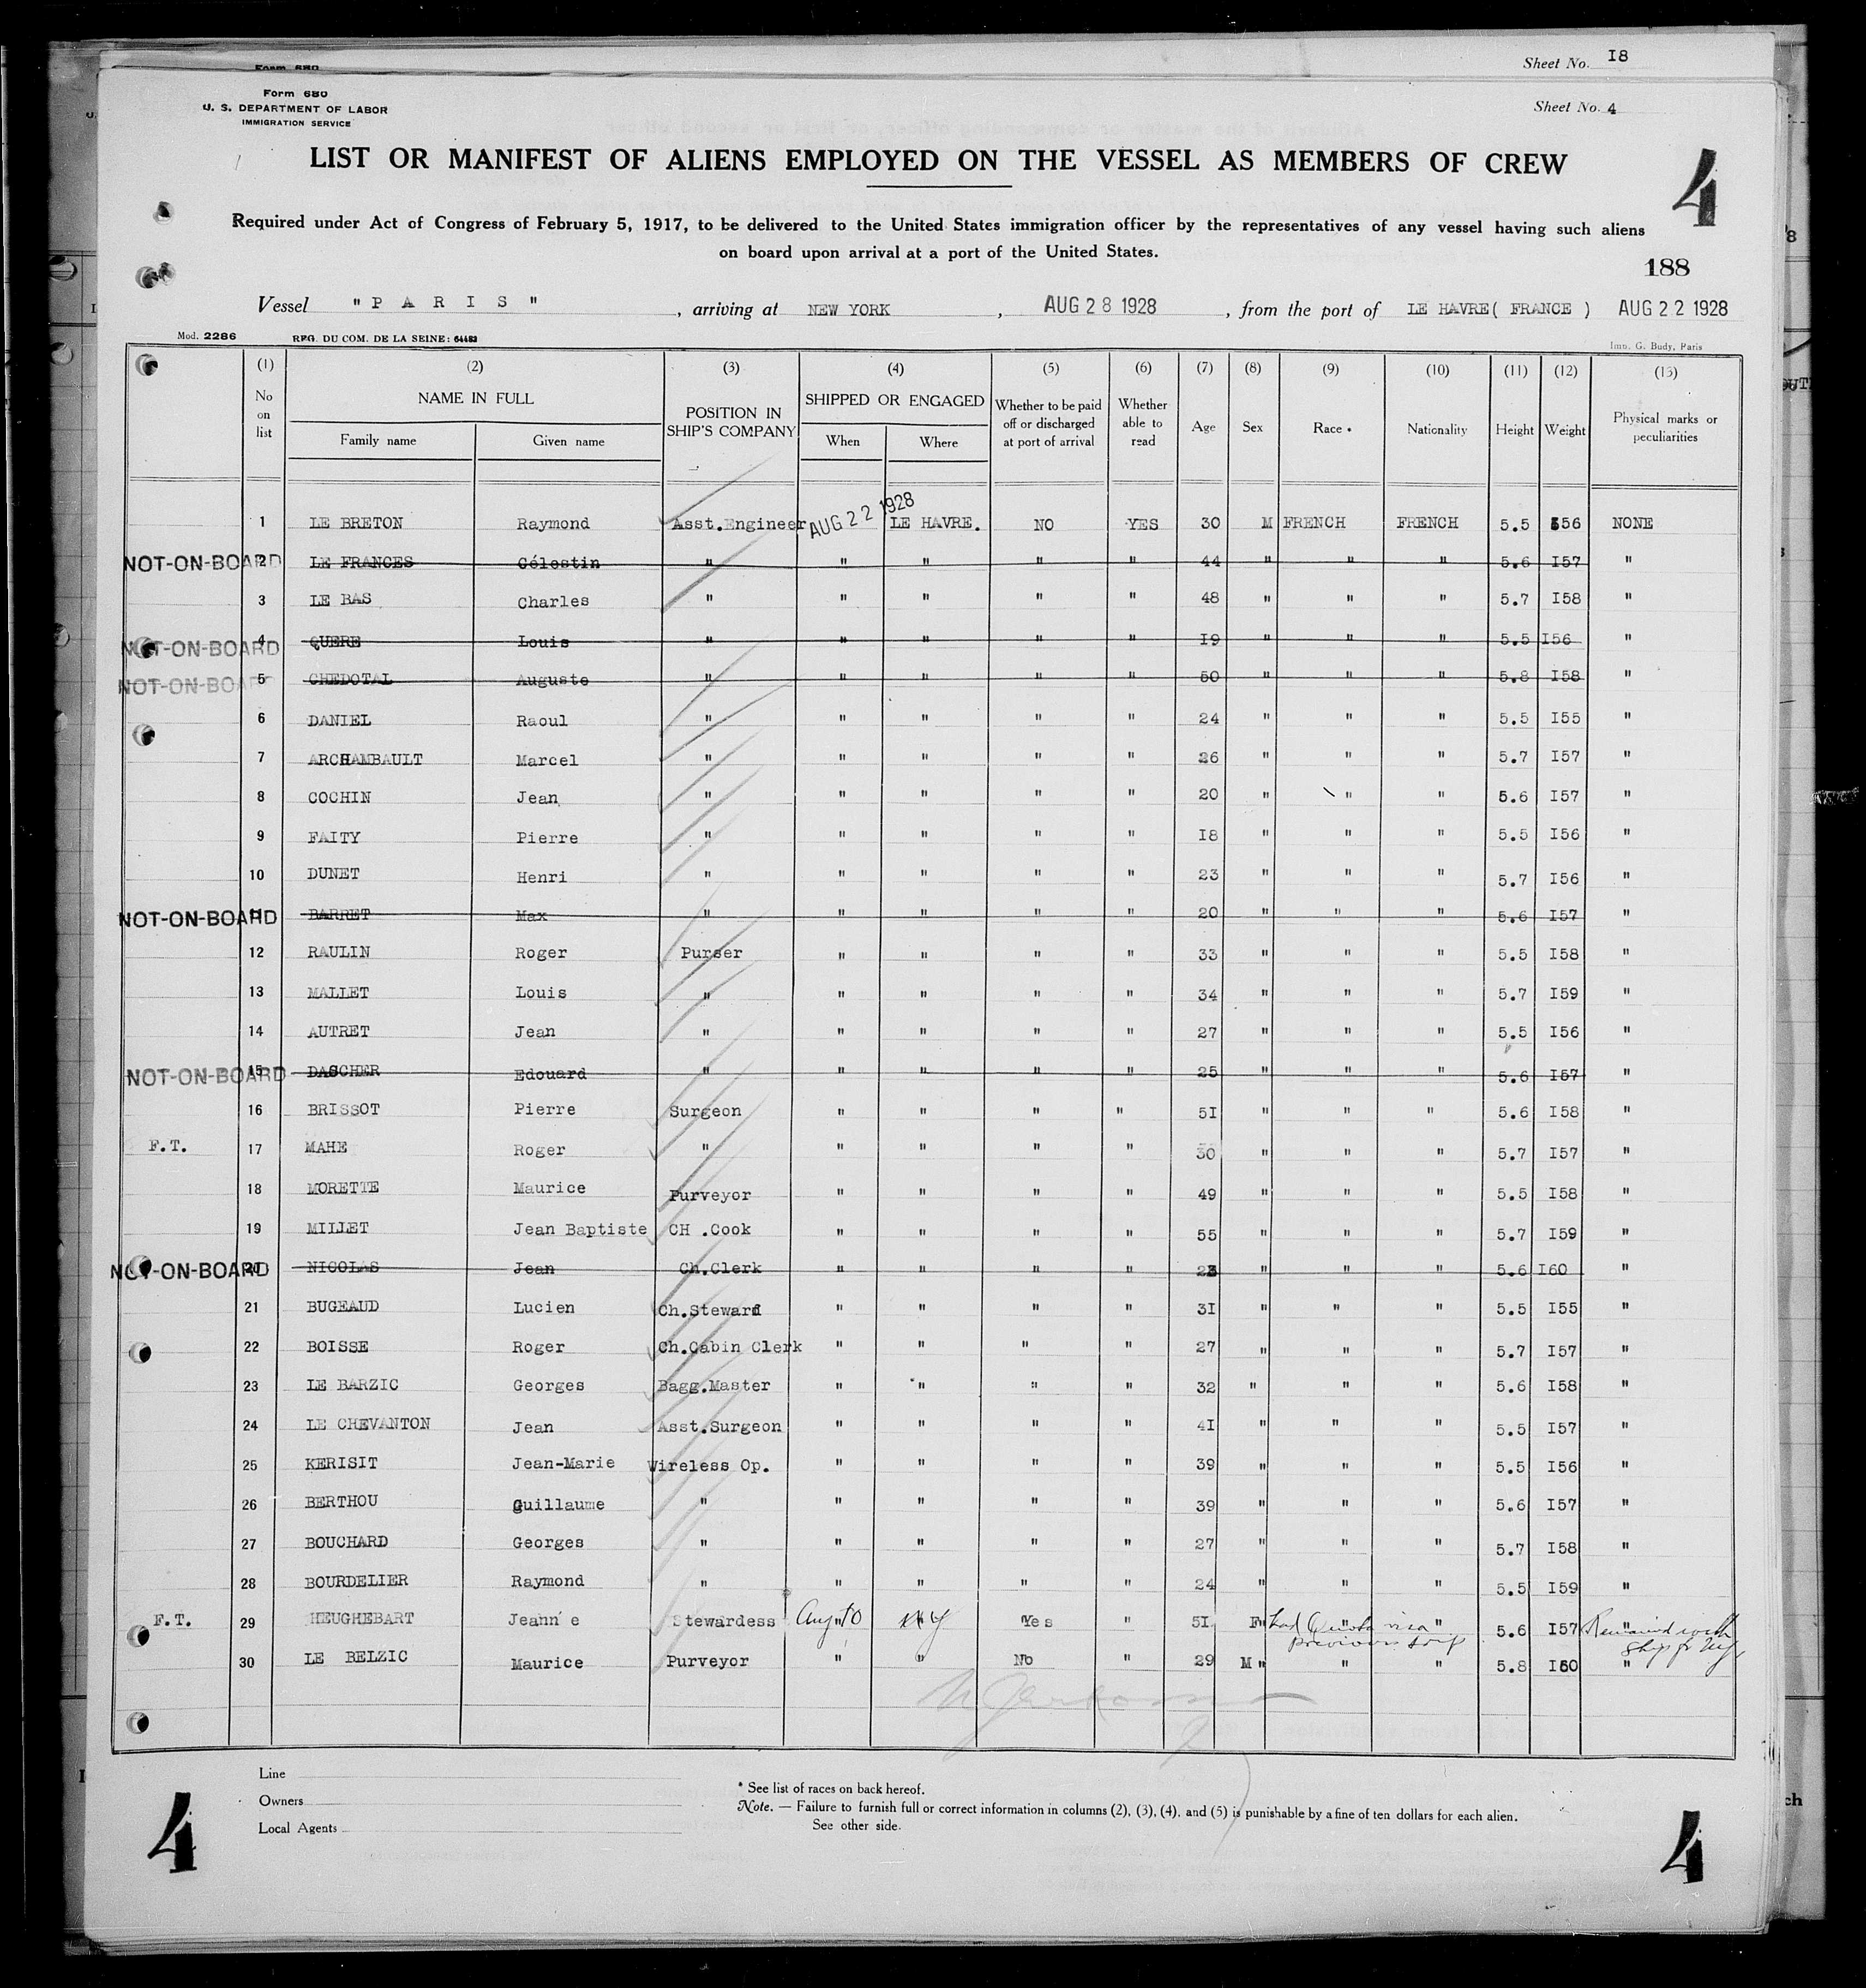 Form 680
Sheet No. I8
Form 680
U. S. DEPARTMENT OF LABOR
IMMIGRATION SERVICE
Sheet No. 4
LIST OR MANIFEST OF ALIENS EMPLOYED ON THE VESSEL AS MEMBERS OF CREW
4
Required under Act of Congress of February 5, 1917, to be delivered to the United States immigration officer by the representatives of any vessel having such aliens
on board upon arrival at a port of the United States.
188
Vessel " P A R I S " , arriving at NEW YORK , AUG 28 1928 , from the port of LE HAVRE( FRANCE ) AUG 22 1928
Mod. 2286 REG. DU COM. DE LA SEINE: 64483 Imp. G. Budy, Paris
(1) (2) (3) (4) (5) (6) (7) (8) (9) (10) (11) (12) (13)
No on list NAME IN FULL Family name Given name POSITION IN SHIP'S COMPANY SHIPPED OR ENGAGED When Where Whether to be paid off or discharged at port of arrival Whether able to read Age Sex Race * Nationality Height Weight Physical marks or peculiarities
1 LE BRETON Raymond Asst.Engineer AUG 22 1928 LE HAVRE. NO YES 30 M FRENCH FRENCH 5.5 I56 NONE
NOT-ON-BOARD 2 LE FRANCES Célestin " " " " " 44 " " " 5.6 I57 "
3 LE BAS Charles " " " " " 48 " " " 5.7 I58 "
NOT-ON-BOARD 4 QUERE Louis " " " " " I9 " " " 5.5 I56 "
NOT-ON-BOARD 5 CHEDOTAL Auguste " " " " " 50 " " " 5.8 I58 "
6 DANIEL Raoul " " " " " 24 " " " 5.5 I55 "
7 ARCHAMBAULT Marcel " " " " " 26 " " " 5.7 I57 "
8 COCHIN Jean " " " " " 20 " " " 5.6 I57 "
9 FAITY Pierre " " " " " I8 " " " 5.5 I56 "
10 DUNET Henri " " " " " 23 " " " 5.7 I56 "
NOT-ON-BOARD 11 BARRET Max " " " " " 20 " " " 5.6 I57 "
12 RAULIN Roger Purser " " " " 33 " " " 5.5 I58 "
13 MALLET Louis " " " " " 34 " " " 5.7 I59 "
14 AUTRET Jean " " " " " 27 " " " 5.5 I56 "
NOT-ON-BOARD 15 DASCHER Edouard " " " " " 25 " " " 5.6 I57 "
16 BRISSOT Pierre Surgeon " " " " 5I " " " 5.6 I58 "
F.T. 17 MAHE Roger " " " " " 30 " " " 5.7 I57 "
18 MORETTE Maurice Purveyor " " " " 49 " " " 5.5 I58 "
19 MILLET Jean Baptiste CH .Cook " " " " 55 " " " 5.7 I59 "
NOT-ON-BOARD 20 NICOLAS Jean Ch.Clerk " " " " 23 " " " 5.6 I60 "
21 BUGEAUD Lucien Ch.Steward " " " " 3I " " " 5.5 I55 "
22 BOISSE Roger Ch.Cabin Clerk " " " " 27 " " " 5.7 I57 "
23 LE BARZIC Georges Bagg.Master " " " " 32 " " " 5.6 I58 "
24 LE CHEVANTON Jean Asst.Surgeon " " " " 4I " " " 5.5 I57 "
25 KERISIT Jean-Marie Wireless Op. " " " " 39 " " " 5.5 I56 "
26 BERTHOU Guillaume " " " " " 39 " " " 5.6 I57 "
27 BOUCHARD Georges " " " " " 27 " " " 5.7 I58 "
28 BOURDELIER Raymond " " " " " 24 " " " 5.5 I59 "
F.T. 29 HEUGHEBART Jeanne Stewardess Aug 10 NY Yes " 5I F had Quota visa previous trip " " 5.6 I57 " Remained with ship
30 LE BELZIC Maurice Purveyor " " No " 29 M " " " 5.8 I60 "
Line
Owners
Local Agents
* See list of races on back hereof.
Note. — Failure to furnish full or correct information in columns (2), (3), (4), and (5) is punishable by a fine of ten dollars for each alien.
See other side.
4
4